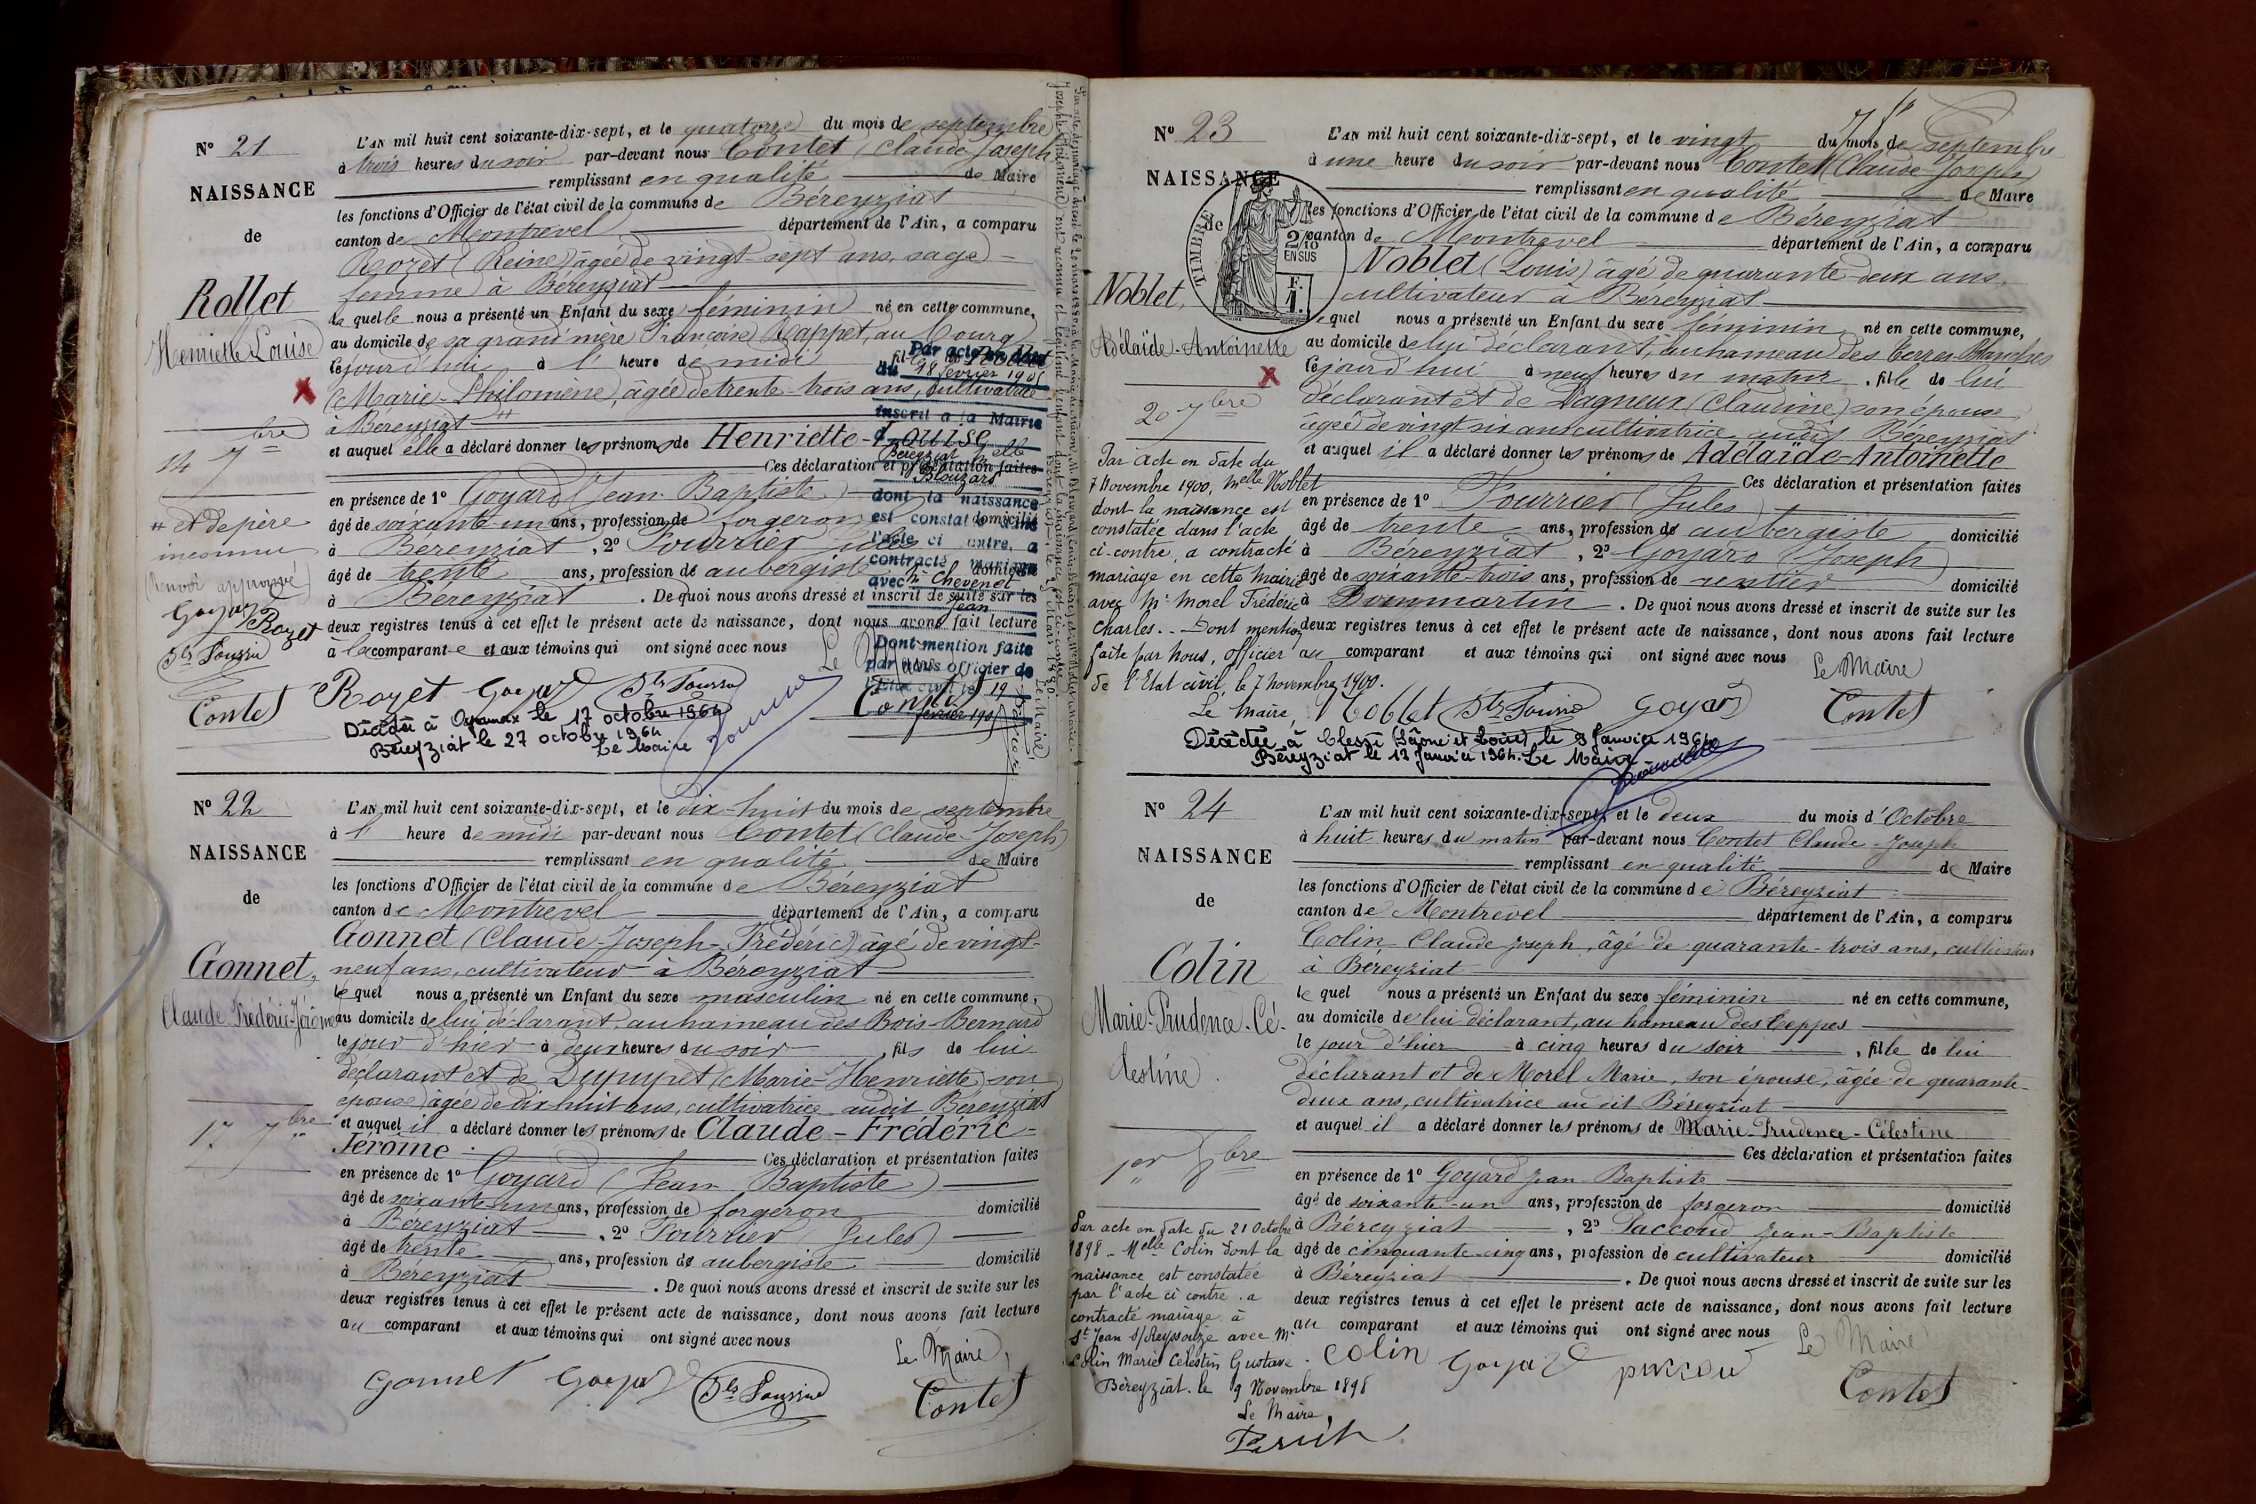 N° 21
NAISSANCE
de
Rollet
Henriette Louise
14 7bre
# et de père
inconnu
(renvoi approuvé)
Goyard
Rozet
Jles Fourrier
Contet
L'AN mil huit cent soixante-dix-sept, et le quatorze du mois de septembre
à trois heures du soir par-devant nous Contet (Claude Joseph)
remplissant en qualité de Maire
les fonctions d'Officier de l'état civil de la commune de Béreyziat
canton de Montrevel département de l'Ain, a comparu
Rozet (Reine) âgée de vingt-sept ans, sage-
femme à Béreyziat
laquelle nous a présenté un Enfant du sexe féminin né en cette commune,
au domicile de sa grand'mère Françoise Rappet, au Bourg
cejourd'hui à l' heure de midi
(Marie-Philomène), âgée de trente-trois ans, cultivatrice
à Béreyziat #
et auquel elle a déclaré donner les prénoms de Henriette-Louise
Ces déclaration et présentation faites
en présence de 1° Goyard (Jean Baptiste)
âgé de soixante-un ans, profession de forgeron domicilié
à Béreyziat, 2° Fourrier Jules
âgé de trente ans, profession de aubergiste domicilié
à Béreyziat. De quoi nous avons dressé et inscrit de suite sur les
deux registres tenus à cet effet le présent acte de naissance, dont nous avons fait lecture
à la comparante et aux témoins qui ont signé avec nous
Rozet Goyard Jles Fourrier Contet
Par acte en date
du 18 février 1905
inscrit à la Mairie
d
Béreyziat Melle
Blouzard
dont la naissance
est constatée
l'acte ci contre, a
contracté mariage
avec Mr Chevenet
Jean
Dont mention faite
par nous officier de
l'Etat civil le 19
février 1905
Décédée à Oyonnax le 17 octobre 1964
Béreyziat le 27 octobre 1964
Le Maire
N° 22
NAISSANCE
de
Gonnet,
Claude Frédéric-Jérôme
17 7bre
L'AN mil huit cent soixante-dix-sept, et le dix-huit du mois de septembre
à l' heure de midi par-devant nous Contet (Claude Joseph)
remplissant en qualité de Maire
les fonctions d'Officier de l'état civil de la commune de Béreyziat
canton de Montrevel département de l'Ain, a comparu
Gonnet (Claude-Joseph-Frédéric) âgé de vingt-
neuf ans, cultivateur à Béreyziat
lequel nous a présenté un Enfant du sexe masculin né en cette commune,
au domicile de lui déclarant, au hameau des Bois-Bernard
le jour d'hier à deux heures du soir, fils de lui
déclarant et de Dupupet (Marie-Henriette) son
épouse, âgée de dix huit ans, cultivatrice audit Béreyziat
et auquel il a déclaré donner les prénoms de Claude-Frédéric-
Jérôme
Ces déclaration et présentation faites
en présence de 1° Goyard (Jean Baptiste)
âgé de soixante-un ans, profession de forgeron domicilié
à Béreyziat, 2° Fourrier (Jules)
âgé de trente ans, profession de aubergiste domicilié
à Béreyziat. De quoi nous avons dressé et inscrit de suite sur les
deux registres tenus à cet effet le présent acte de naissance, dont nous avons fait lecture
au comparant et aux témoins qui ont signé avec nous
Le Maire,
Gonnet Goyard Jles Fourrier Contet
N° 23
NAISSANCE
de
TIMBRE
2/10
EN SUS
F.
1.
Noblet,
Adélaïde-Antoinette
20 7bre
Par acte en date du
7 Novembre 1900, Melle Noblet
dont la naissance est
constatée dans l'acte
ci-contre, a contracté
mariage en cette mairie
avec Mr Morel Frédéric
Charles. - Dont mention
faite par Nous, officier
de l'Etat civil, le 7 novembre 1900.
Le Maire,
L'AN mil huit cent soixante-dix-sept, et le vingt du mois de septembre
à une heure du soir par-devant nous Contet (Claude Joseph)
remplissant en qualité de Maire
les fonctions d'Officier de l'état civil de la commune de Béreyziat
canton de Montrevel département de l'Ain, a comparu
Noblet (Louis) âgé de quarante-deux ans,
cultivateur à Béreyziat
lequel nous a présenté un Enfant du sexe féminin né en cette commune,
au domicile de lui déclarant, au hameau des Terres-Blanches
cejourd'hui à neuf heures du matin, fille de lui
déclarant et de Pagneux (Claudine) son épouse
âgée de vingt six ans cultivatrice audit Béreyziat
et auquel il a déclaré donner les prénoms de Adélaïde-Antoinette
Ces déclaration et présentation faites
en présence de 1° Fourrier (Jules)
âgé de trente ans, profession de aubergiste domicilié
à Béreyziat, 2° Goyard (Joseph)
âgé de soixante-trois ans, profession de rentier domicilié
à Dommartin. De quoi nous avons dressé et inscrit de suite sur les
deux registres tenus à cet effet le présent acte de naissance, dont nous avons fait lecture
au comparant et aux témoins qui ont signé avec nous
Le Maire
Noblet Jles Fourrier Goyard Contet
Décédée à Clessé (Saône et Loire) le 9 Janvier 1964
Béreyziat le 12 Janvier 1964. Le Maire
N° 24
NAISSANCE
de
Colin
Marie-Prudence-Cé-
lestine.
1er 8bre
Par acte en date du 21 Octobre
1898 - Melle Colin dont la
naissance est constatée
par l'acte ci contre, a
contracté mariage à
St Jean s/Reyssouze avec Mr
Colin Marie Célestin Gustave.
Béreyziat, le 9 Novembre 1898
Le Maire,
L'AN mil huit cent soixante-dix-sept, et le deux du mois d'Octobre
à huit heures du matin par-devant nous Contet Claude-Joseph
remplissant en qualité de Maire
les fonctions d'Officier de l'état civil de la commune de Béreyziat
canton de Montrevel département de l'Ain, a comparu
Colin Claude Joseph, âgé de quarante-trois ans, cultivateur
à Béreyziat
lequel nous a présenté un Enfant du sexe féminin né en cette commune,
au domicile de lui déclarant, au hameau des Teppes
le jour d'hier à cinq heures du soir, fille de lui
déclarant et de Morel Marie, son épouse, âgée de quarante-
deux ans, cultivatrice au dit Béreyziat
et auquel il a déclaré donner les prénoms de Marie-Prudence-Célestine
Ces déclaration et présentation faites
en présence de 1° Goyard Jean Baptiste
âgé de soixante-un ans, profession de forgeron domicilié
à Béreyziat, 2° Paccoud Jean-Baptiste
âgé de cinquante-cinq ans, profession de cultivateur domicilié
à Béreyziat. De quoi nous avons dressé et inscrit de suite sur les
deux registres tenus à cet effet le présent acte de naissance, dont nous avons fait lecture
au comparant et aux témoins qui ont signé avec nous
Le Maire
Colin Goyard Contet